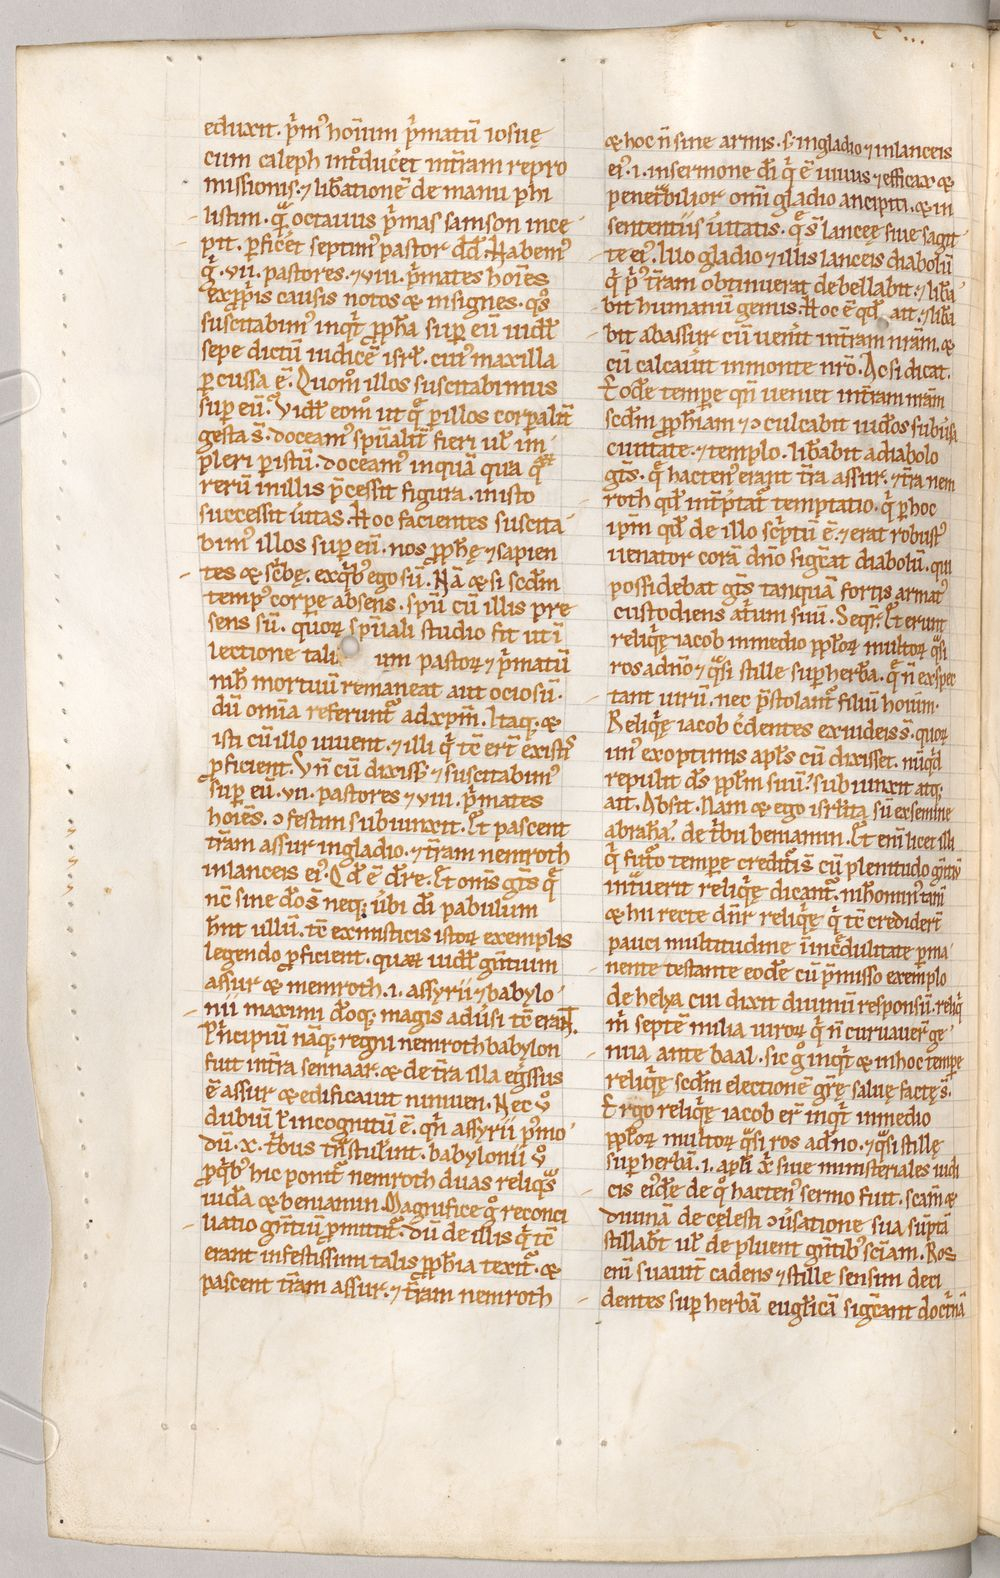 eduxit. p̾mꝰ hoı̄um p̾matū iosuę
cum caleph int̾duceret intr̄am repro
missionis. ⁊ lib̾ationē de manu phi
listim. quā octauus p̾mas samson ince
pit. ꝑficeret septimꝰ pastor dd̄. Habemꝰ
g̾. vii. pastores. ⁊ viii. p̾mates hoīes
exp̄ris causis notos & insignes. qͦs
suscitabimꝰ inqͥt ꝓph̄a sup̱ eū uidl̄
sepe dictū iudicē isrl̄. cuiꝰ maxilla
ꝑcussa ē. Quom̊ illos suscitabimus
sup̱ eū. Vidl̄ eom̊ ut qͣ ꝑillos corꝑalit̄
gesta s̄. doceamꝰ spūalit̄ fieri ul̄ im
pleri ꝑistū. doceamꝰ inquā quia qͣꝝ
rerū inillis p̄cessit figura. inisto
successit ūitas. Hoc facientes suscita
bimꝰ illos sup̱ eū. nos ꝓph̄ę ⁊ sapien
tes & sc̄bę. exqͥbꝰ ego sū. Nā & si scd̄m
tempꝰ corꝑe absens. spū cū illis pre
sens sū. quoꝝ spūali studio fit ut ī
lectione tali um pastoꝝ ⁊ p̾matū
nih̄ mortuū remaneat aut ociosū.
dū omīa referunt̄ adxp̄m. Itaq; &
isti cū illo uiuent. ⁊ illi qͥ tc̄ er̄t existīs
ꝓficient. Vn̄ cū dixiss; ⁊ suscitabimꝰ
sup̱ eū. vii. pastores ⁊ viii. p̾mates
hoīes. ɔfestim subiunxit. Et pascent
tr̄am assur ingladio. ⁊ tr̄am nemroth
inlanceis eiꝰ. Qd̄ ē dr̄e. Et om̄s gn̄s qͣ
nc̄ sine dō s̄ neq; ubi di pabulum
hn̄t ullū. tc̄ exmisticis istoꝝ exemplis
legendo ꝓficient. quaꝝ uidl̄ gn̄tium
assur & nemroth .i. assyrii ⁊ babylo
nii maximi dōq; magis aduersi tc̄ erant.
P̾ncipiū nāq; regni nemroth babylon
fuit intr̄a sennaar. & de tr̄a illa egressus
ē assur & edificauit niniuen. Nec ů
dubiū ł incognitū ē. qn̄ assyrii p̾mo
dū .x. tͥbus trāstuler̄t. babylonii ů
ꝓqͥbꝰ hic ponit̄ nemroth duas reliqͣs
iuda & beniamin. Magnifice g̊ reconci
liatio gn̄tiū ꝓmittit̄. dū de illis qͥ tc̄
erant infestissimi talis ꝓph̄ia texit̄. &
pascent tr̄am assur. ⁊ tr̄am nemroth
& hoc n̄ sine armis. s; ingladio ⁊ inlanceis
eiꝰ .i. insermone dī qͥ ē uiuus ⁊ efficax &
penetͣbilior omī gladio ancipiti. & in
sententiis ūitatis. qͣ s̄ lanceę siue sagit
tę eiꝰ. Isto gladio ⁊ illis lanceis diabolū
qͥ p̾ꝰ tr̄am obtinuerat debellabit. ⁊ libā
bit humanū genus. Hoc ē qd̄ ait. ⁊ libā
bit abassur cū uenerit intr̄am nr̄am. &
cū calcauit inmonte nr̄o. Ac si dicat.
Eodē tempe qn̄ ueniet intr̄am nr̄am
scd̄m ꝓph̄iam ⁊ ɔculcabit iudeos subuersa
ciuitate. ⁊ templo. lib̾abit adiabolo
gn̄s. qͣ hactenꝰ erant tr̄a assur. ⁊ tr̄a nem
roth qd̄ int̄p̄tat̄ temptatio. qͥ ꝑ hoc
ip̄m qd̄ de illo sc̄ptū ē. ⁊ erat robustꝰ
uenator corā dn̄o significat diabolū. qui
possidebat gn̄s tanquā fortis armatꝰ
custodiens atͥum suū. Seqͥr. Et erunt
reliqͥę iacob inmedio ppl̄oꝝ multoꝝ qͣsi
ros adn̄o ⁊ qͣsi stille sup̱ herbā. qͣ n̄ exspec
tant uirū. nec p̄stolant̄ filiū hoīum.
Reliqͥę iacob c̾dentes exiudeis s̄. quoꝝ
unꝰ exoptimis apl̄s cū dixisset. nūqͥd
repulit ds̄ ppl̄m suū? subiunxit atq;
ait. Absit. Nam & ego isrl̄ita sū exsemine
abrahā. de tͥbu beniamin. Et em̄ licet illi
qͥ futͦo tempe credituri s̄ cū plenitudo gn̄tiū
intͣuerit reliqͥę dicant̄. nih̄ominꝰ tamē
& hii recte dn̄r reliqͥę qͥ tc̄ credider̄t
pauci multitudine ī incͣdulitate ꝑma
nente testante eodē cū p̄misso exemplo
de helya cui dixit diuinū responsū. reliqͥ
m̄ septē milia uiroꝝ qͥ n̄ curuauer̄ ge
nua ante baal. sic g̊ inqͥt & inhoc tempe
reliqͥę scd̄m electionē gr̄ę saluę factę s̄.
Ergo reliqͥę iacob er̄t inqͥt inmedio
ppl̄oꝝ multoꝝ qͣsi ros adn̄o. ⁊ qͣsi stillę
sup̱ herbā .i. apl̄i xͥ siue ministeriales iudi
cis eiꝰdē de qͦ hactenꝰ sermo fuit. scam̄ &
diuinā de cęlesti ɔuersatione sua sūptā
stillab̄t ul̄ de pluent gn̄tibꝰ sciam̄. Ros
em̄ suauit̄ cadens ⁊ stille sensim deci
dentes sup̱ herbā eugl̄icā significant doctͥnā